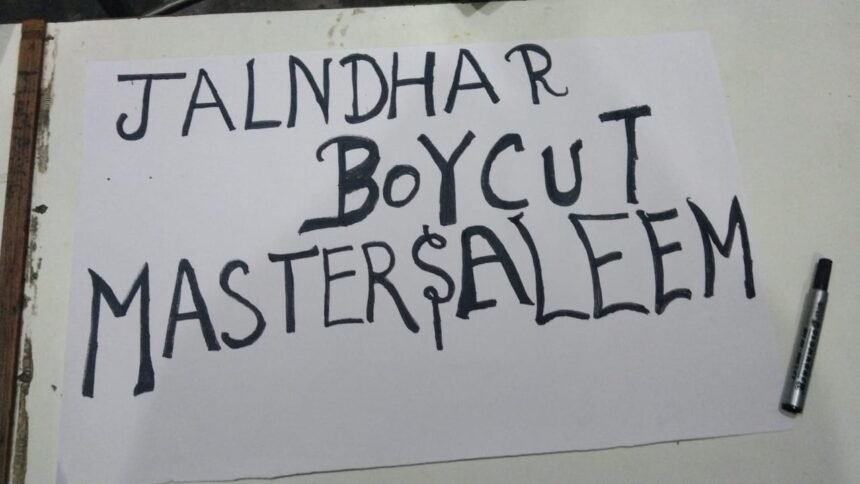 JALNDHAR
BOYCUT
MASTER$ALEEM